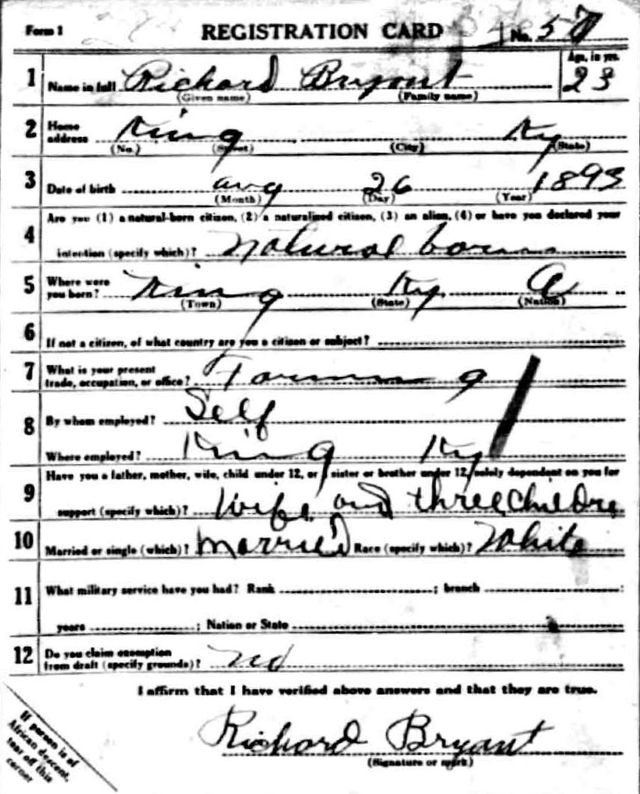 Form 1 REGISTRATION CARD No. 57
1 Name in full Richard Bryant Age, in yrs. 23
(Given name) (Family name)
2 Home address King Ky
(No.) (Street) (City) (State)
3 Date of birth aug 26 1893
(Month) (Day) (Year)
4 Are you (1) a natural-born citizen, (2) a naturalized citizen, (3) an alien, (4) or have you declared your
intention (specify which)? Natural born
5 Where were you born? King Ky A
(Town) (State) (Nation)
6 If not a citizen, of what country are you a citizen or subject?
7 What is your present trade, occupation, or office? Farming
8 By whom employed? Self
Where employed? King Ky
9 Have you a father, mother, wife, child under 12, or sister or brother under 12, solely dependent on you for
support (specify which)? Wife and three Childre
10 Married or single (which)? Married Race (specify which)? White
11 What military service have you had? Rank ; branch ;
years ; Nation or State
12 Do you claim exemption from draft (specify grounds)? No
I affirm that I have verified above answers and that they are true.
Richard Bryant
(Signature or mark)
If person is of
African descent,
tear off this
corner